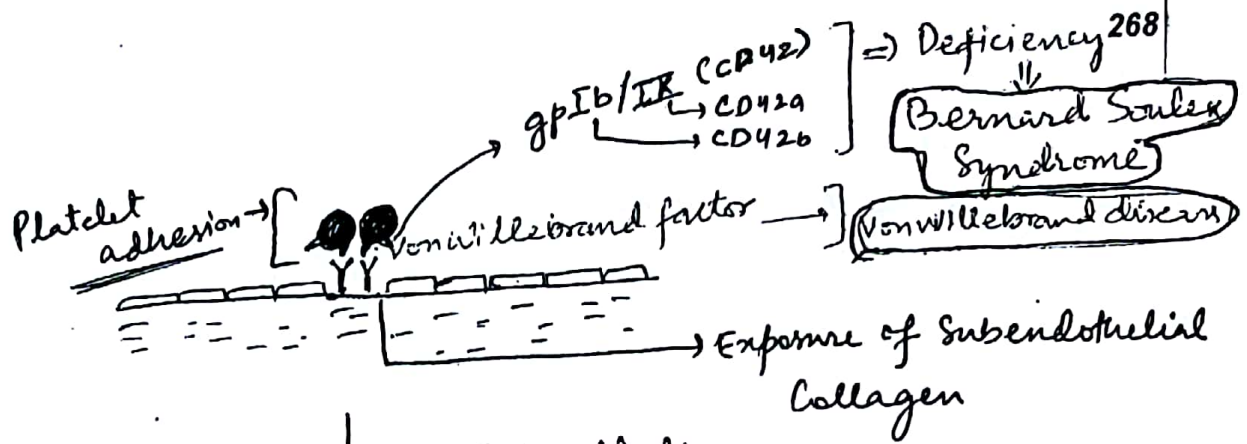 268
gpIb/IX (CD42) ] => Deficiency
CD42a
CD42b
Bernard Soulier
Syndrome
Platelet
adhesion
Vonwillebrand factor
Vonwillebrand disease
Exposure of Subendothelial
Collagen